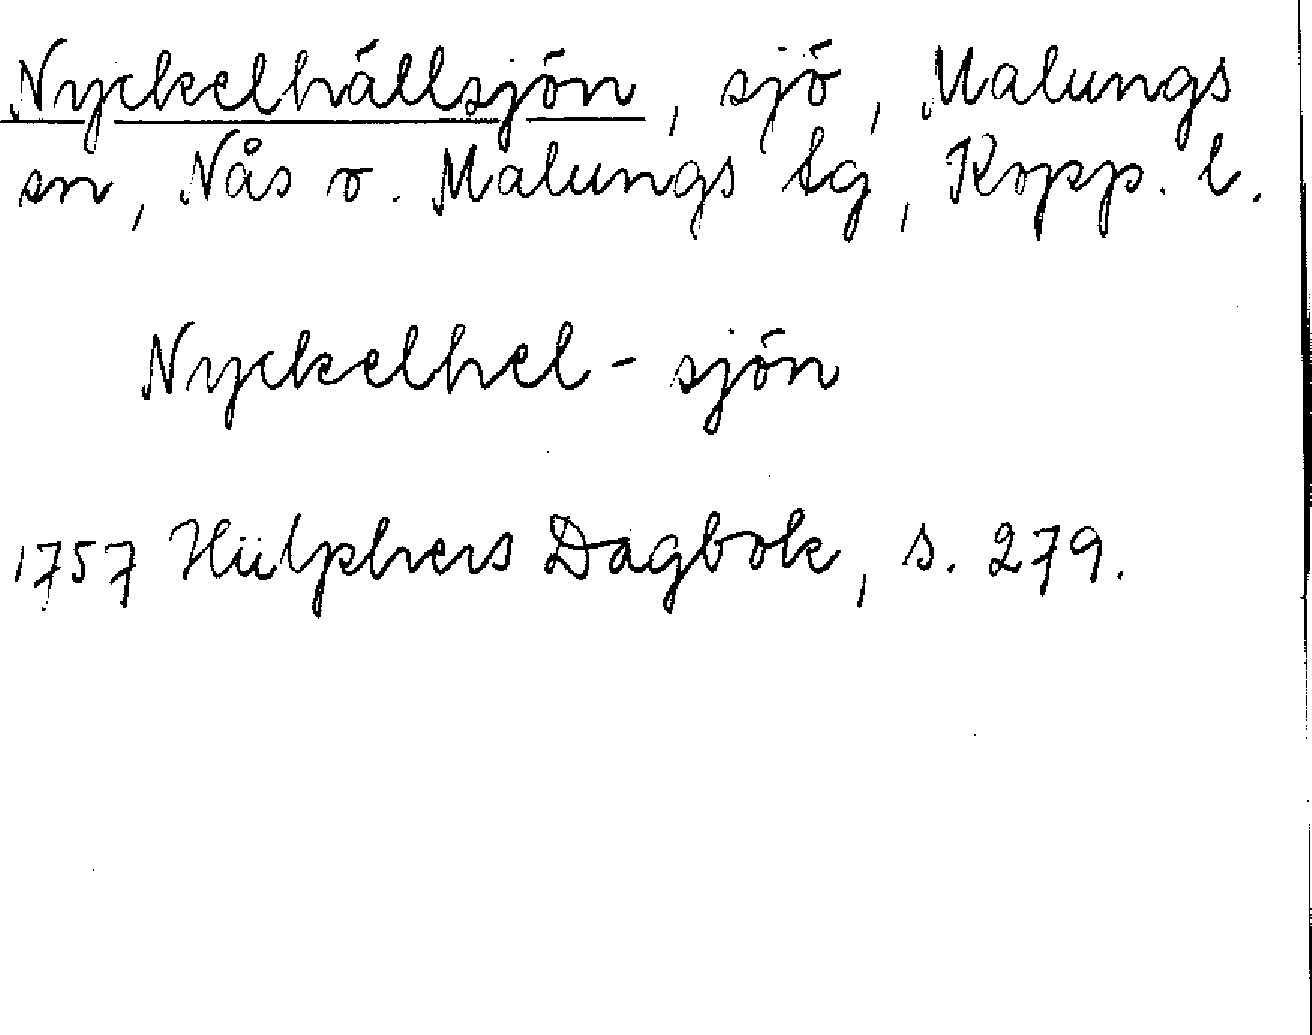 Nyckelhällsjön, sjö, Malungs
sn, Nås o. Malungs tg, Kopp. l.
Nyckelhel - sjön
1757 Hülphers Dagbok, s. 279.